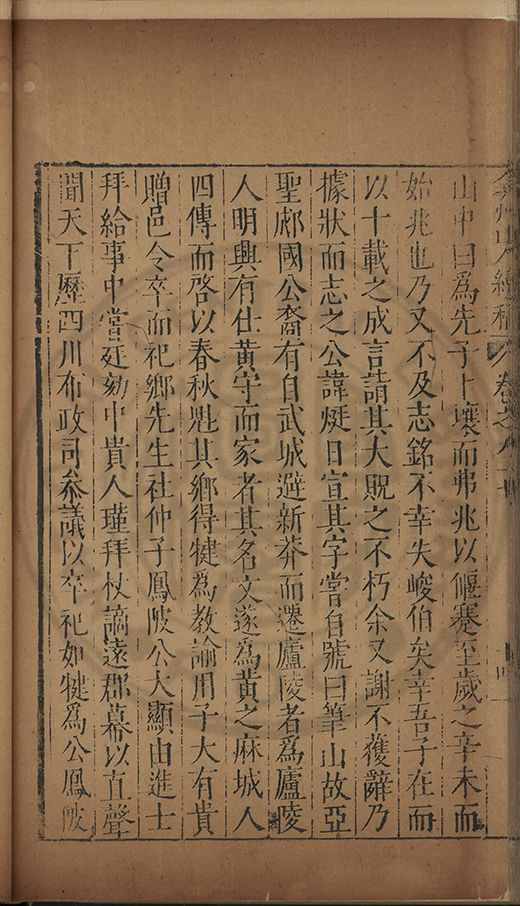 弇州山人續稿 卷之九十四
山中曰爲先子卜壤而弗兆以偃蹇至歲之辛未而
始兆也乃又不及志銘不幸失峻伯矣幸吾子在而
以十載之成言請其大貺之不朽余又謝不獲辭乃
據狀而志之公諱烶日宣其字嘗自號曰筆山故亞
聖郕國公裔有自武城避新莽而遷廬陵者爲廬陵
人明興有仕黃守而家者其名文遂爲黃之麻城人
四傳而啓以春秋魁其鄉得犍爲教諭用子大有貴
贈邑令卒而祀鄉先生社仲子鳳陂公大顯由進士
拜給事中嘗廷劾中貴人瑾拜杖謫遠郡幕以直聲
聞天下歷四川布政司叅議以卒祀如犍爲公鳳陂